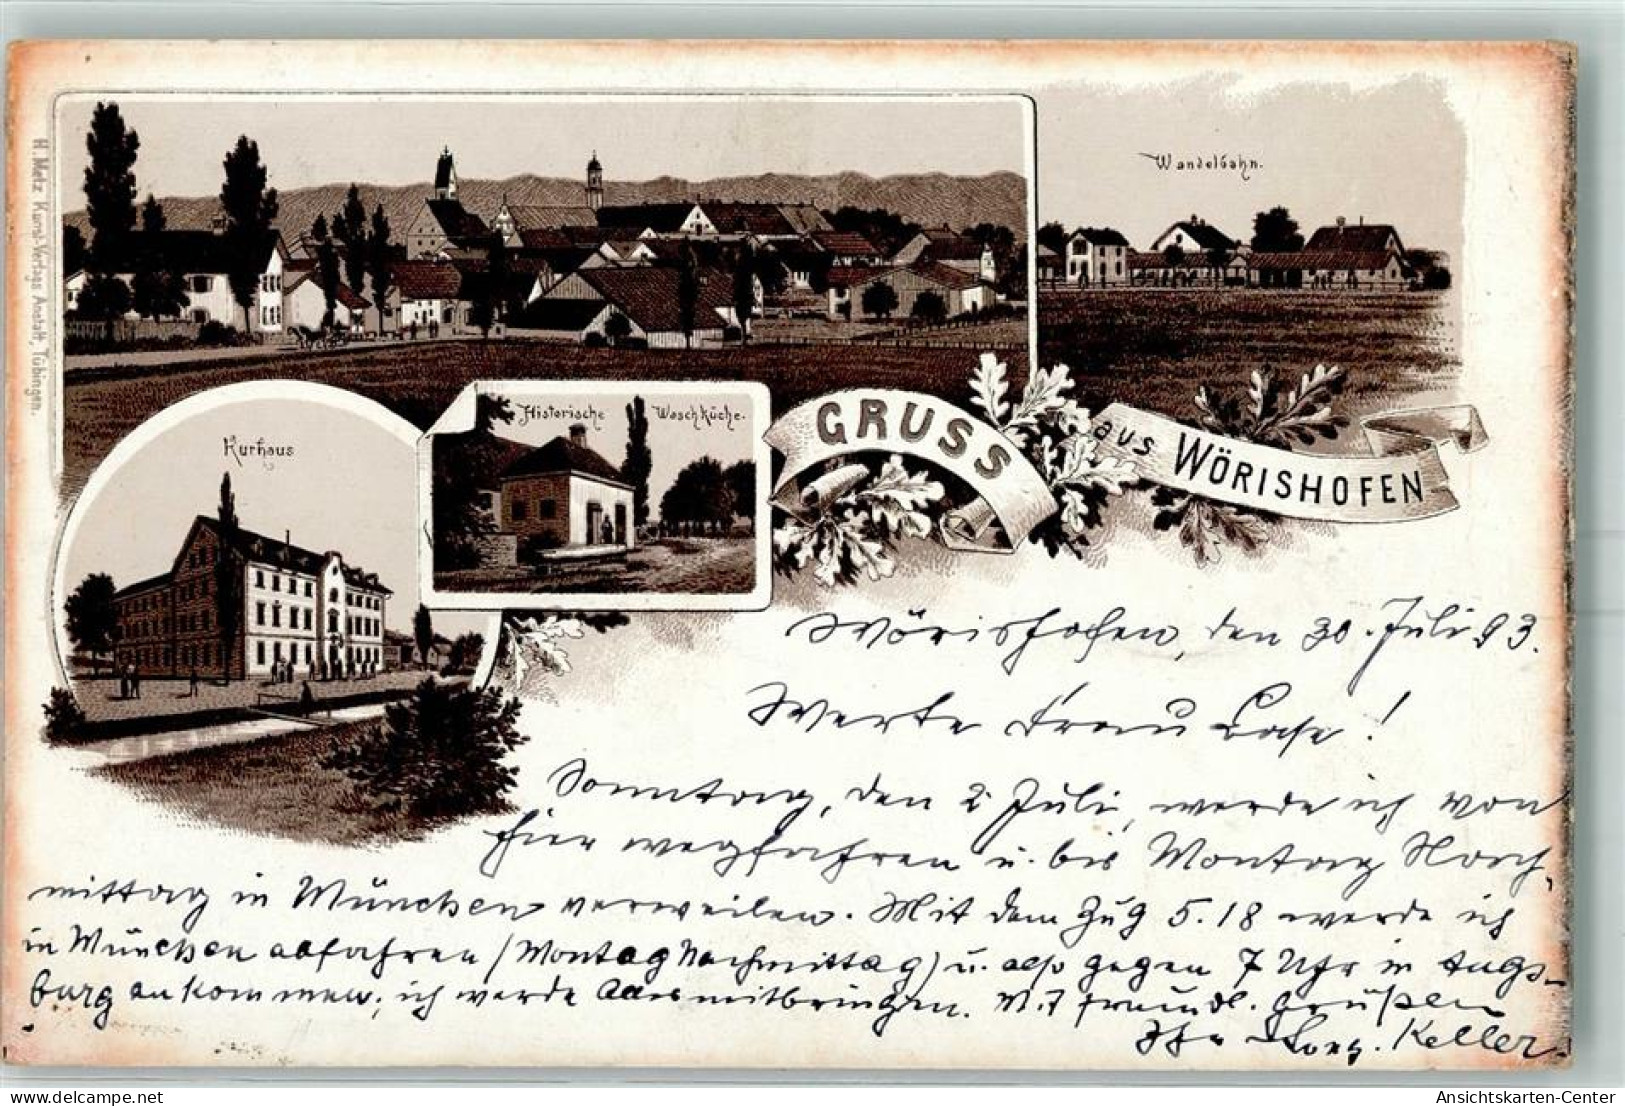 H. Metz Kunst-Verlags Anstalt, Tübingen.
Wandelbahn.
Kurhaus
Historische Waschküche.
GRUSS
aus WÖRISHOFEN
Wörishofen, den 30. Juli 93.
Werte Frau Base!
Sonntag, den 2. Juli, werde ich von
hier wegfahren u. bis Montag Nach-
mittag in München verweilen. Mit dem Zug 5.18 werde ich
in München abfahren (Montag Nachmittag) u. also gegen 7 Uhr in Augs-
burg ankommen; ich werde mitbringen. Mit freundl. Grüßen
Ihr Keller.
AnsichtsKarten-Center
www.delcampe.net